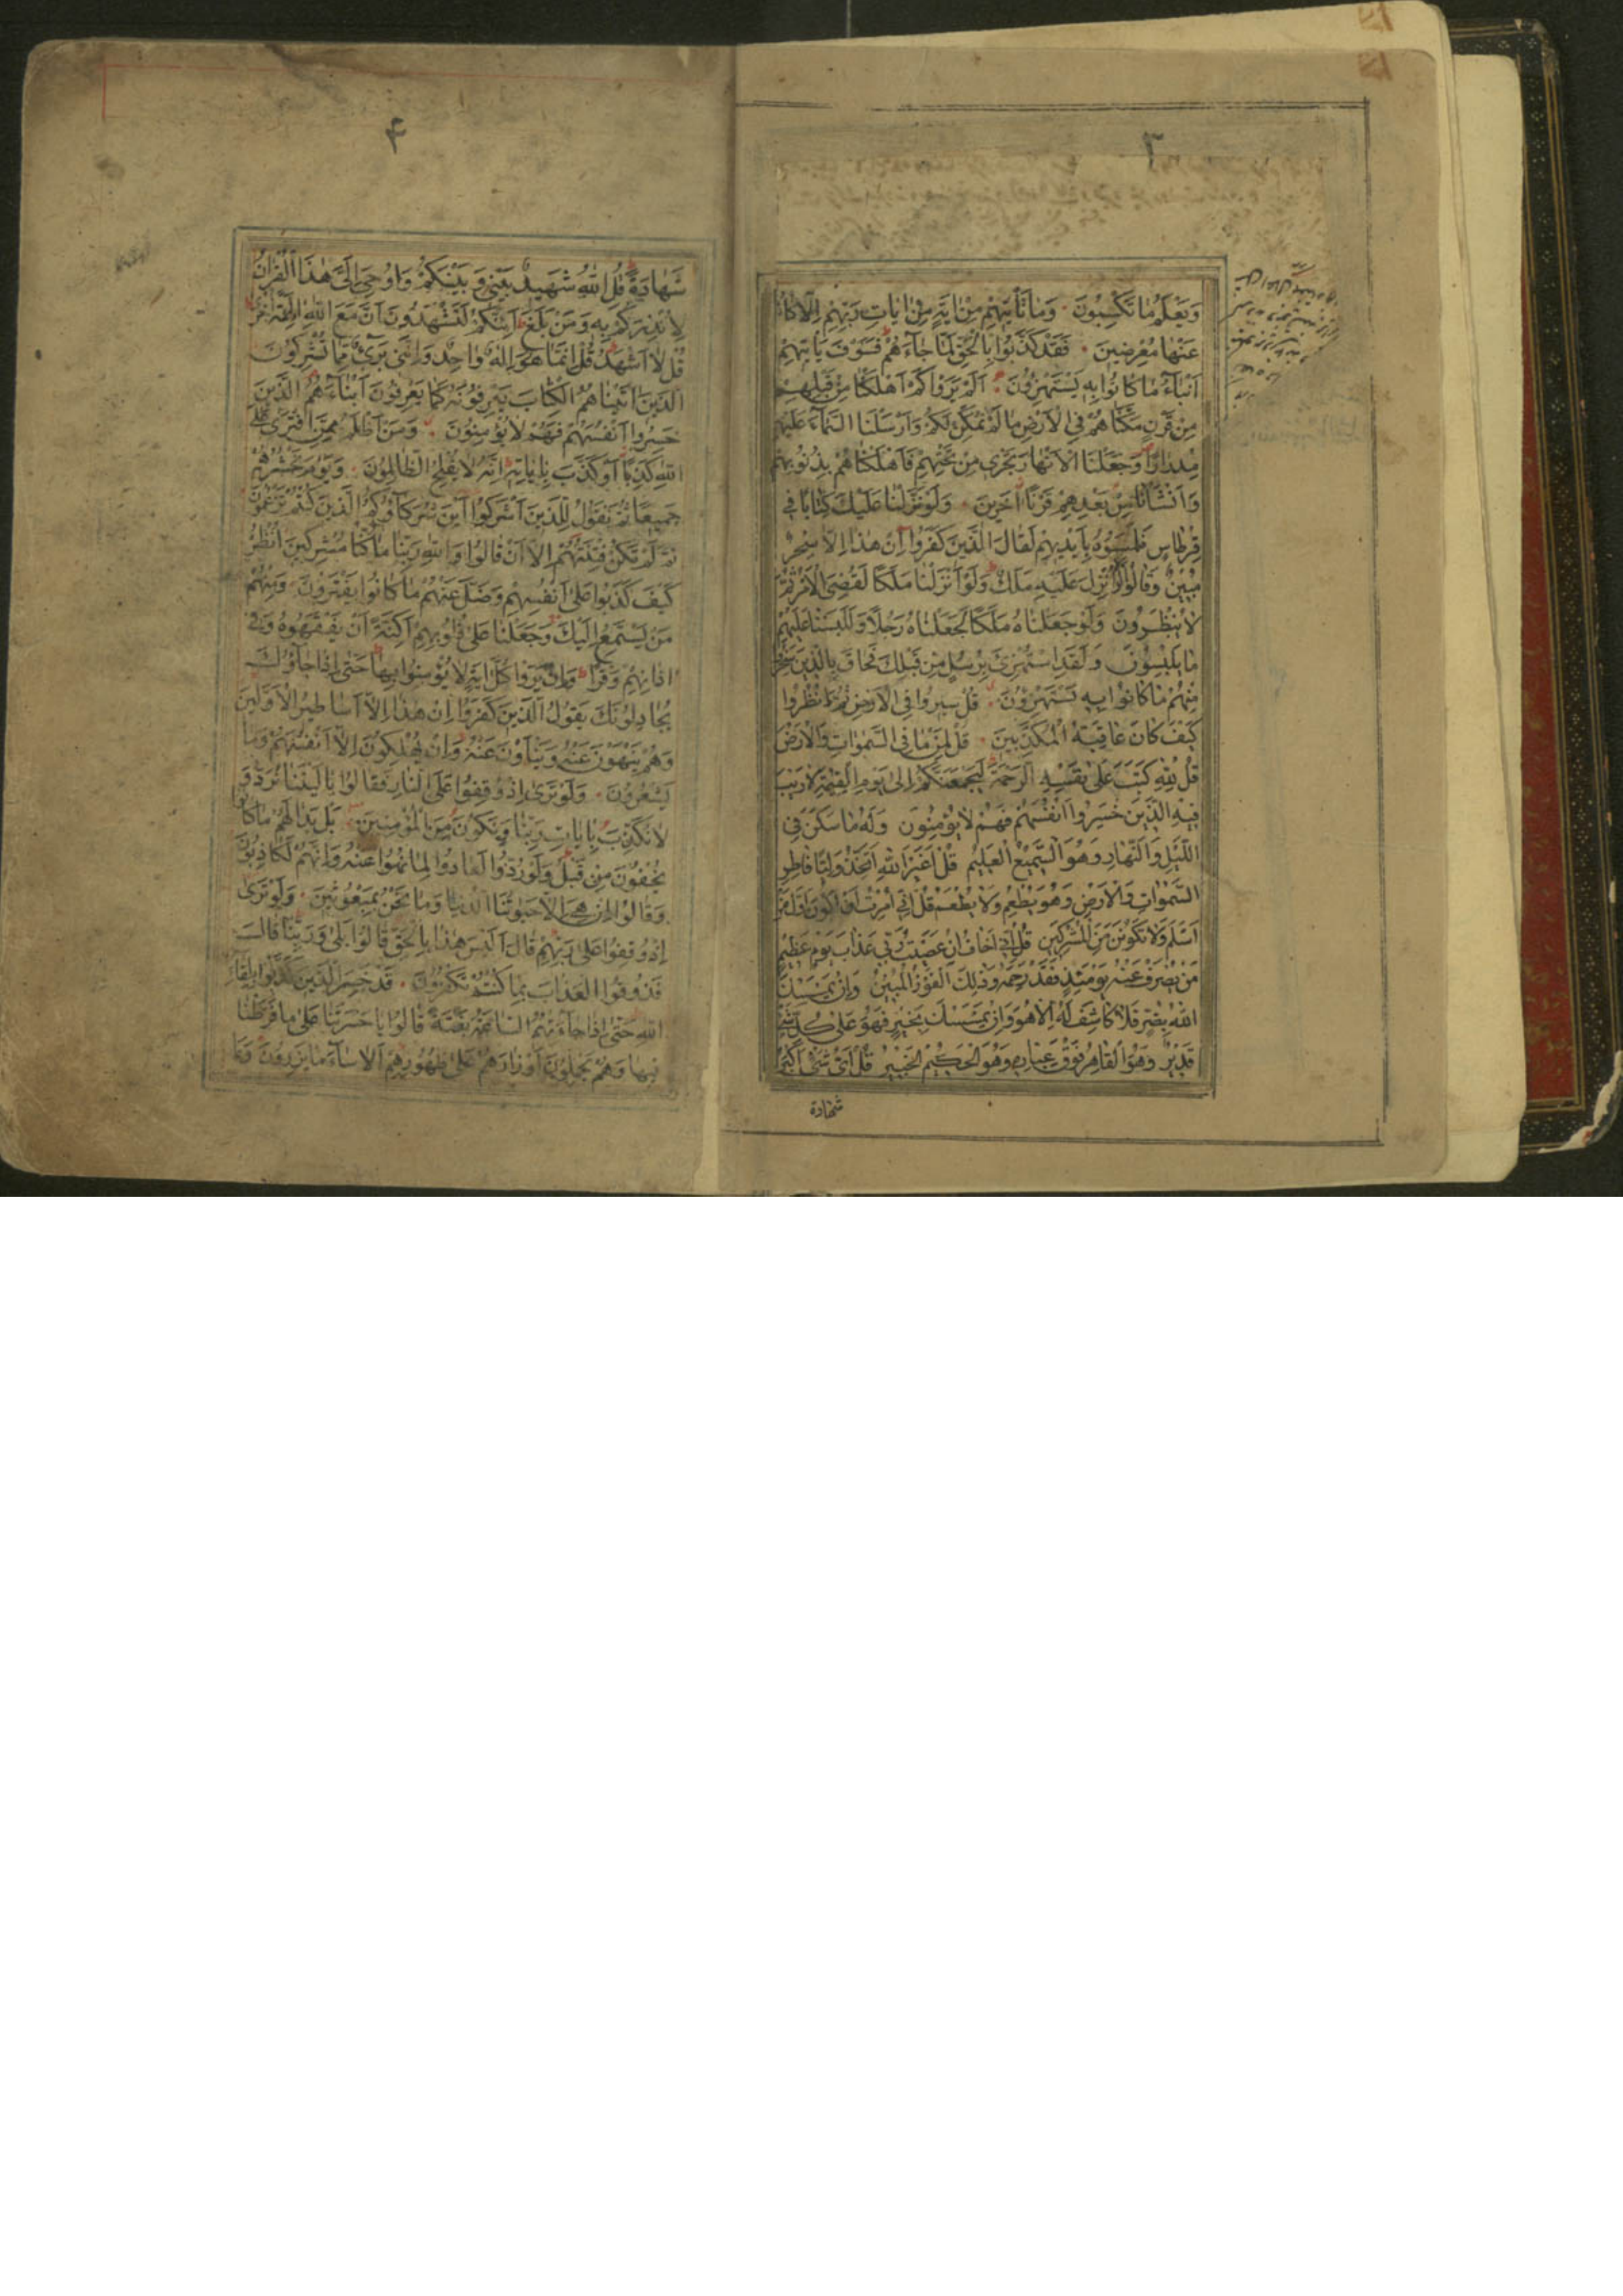 ٣
وَيَعْلَمُ مَا تَكْسِبُونَ وَمَا تَأْتِيهِمْ مِنْ اٰيَةٍ مِنْ اٰيَاتِ رَبِّهِمْ اِلَّا كَانُوا
عَنْهَا مُعْرِضِينَ فَقَدْ كَذَّبُوا بِالْحَقِّ لَمَّا جَاءَهُمْ فَسَوْفَ يَأْتِيهِمْ
اَنْبَاءُ مَا كَانُوا بِهِ يَسْتَهْزِؤُنَ اَلَمْ يَرَوْا كَمْ اَهْلَكْنَا مِنْ قَبْلِهِمْ
مِنْ قَرْنٍ مَكَّنَّاهُمْ فِي الْاَرْضِ مَا لَمْ نُمَكِّنْ لَكُمْ وَاَرْسَلْنَا السَّمَاءَ عَلَيْهِمْ
مِدْرَارًا وَجَعَلْنَا الْاَنْهَارَ تَجْرِي مِنْ تَحْتِهِمْ فَاَهْلَكْنَاهُمْ بِذُنُوبِهِمْ
وَاَنْشَأْنَا مِنْ بَعْدِهِمْ قَرْنًا اٰخَرِينَ وَلَوْ نَزَّلْنَا عَلَيْكَ كِتَابًا فِي
قِرْطَاسٍ فَلَمَسُوهُ بِاَيْدِيهِمْ لَقَالَ الَّذِينَ كَفَرُوا اِنْ هٰذَا اِلَّا سِحْرٌ
مُبِينٌ وَقَالُوا لَوْلَا اُنْزِلَ عَلَيْهِ مَلَكٌ وَلَوْ اَنْزَلْنَا مَلَكًا لَقُضِيَ الْاَمْرُ ثُمَّ
لَا يُنْظَرُونَ وَلَوْ جَعَلْنَاهُ مَلَكًا لَجَعَلْنَاهُ رَجُلًا وَلَلَبَسْنَا عَلَيْهِمْ
مَا يَلْبِسُونَ وَلَقَدِ اسْتُهْزِئَ بِرُسُلٍ مِنْ قَبْلِكَ فَحَاقَ بِالَّذِينَ سَخِرُوا
مِنْهُمْ مَا كَانُوا بِهِ يَسْتَهْزِؤُنَ قُلْ سِيرُوا فِي الْاَرْضِ ثُمَّ انْظُرُوا
كَيْفَ كَانَ عَاقِبَةُ الْمُكَذِّبِينَ قُلْ لِمَنْ مَا فِي السَّمٰوَاتِ وَالْاَرْضِ
قُلْ لِلّٰهِ كَتَبَ عَلٰى نَفْسِهِ الرَّحْمَةَ لَيَجْمَعَنَّكُمْ اِلٰى يَوْمِ الْقِيٰمَةِ لَا رَيْبَ
فِيهِ الَّذِينَ خَسِرُوا اَنْفُسَهُمْ فَهُمْ لَا يُؤْمِنُونَ وَلَهُ مَا سَكَنَ فِي
اللَّيْلِ وَالنَّهَارِ وَهُوَ السَّمِيعُ الْعَلِيمُ قُلْ اَغَيْرَ اللّٰهِ اَتَّخِذُ وَلِيًّا فَاطِرِ
السَّمٰوَاتِ وَالْاَرْضِ وَهُوَ يُطْعِمُ وَلَا يُطْعَمُ قُلْ اِنِّي اُمِرْتُ اَنْ اَكُونَ اَوَّلَ مَنْ
اَسْلَمَ وَلَا تَكُونَنَّ مِنَ الْمُشْرِكِينَ قُلْ اِنِّي اَخَافُ اِنْ عَصَيْتُ رَبِّي عَذَابَ يَوْمٍ عَظِيمٍ
مَنْ يُصْرَفْ عَنْهُ يَوْمَئِذٍ فَقَدْ رَحِمَهُ وَذٰلِكَ الْفَوْزُ الْمُبِينُ وَاِنْ يَمْسَسْكَ
اللّٰهُ بِضُرٍّ فَلَا كَاشِفَ لَهُ اِلَّا هُوَ وَاِنْ يَمْسَسْكَ بِخَيْرٍ فَهُوَ عَلٰى كُلِّ شَيْءٍ
قَدِيرٌ وَهُوَ الْقَاهِرُ فَوْقَ عِبَادِهِ وَهُوَ الْحَكِيمُ الْخَبِيرُ قُلْ اَيُّ شَيْءٍ اَكْبَرُ
شهادة
۴
شَهَادَةً قُلِ اللّٰهُ شَهِيدٌ بَيْنِي وَبَيْنَكُمْ وَاُوحِيَ اِلَيَّ هٰذَا الْقُرْاٰنُ
لِاُنْذِرَكُمْ بِهِ وَمَنْ بَلَغَ اَئِنَّكُمْ لَتَشْهَدُونَ اَنَّ مَعَ اللّٰهِ اٰلِهَةً اُخْرٰى
قُلْ لَا اَشْهَدُ قُلْ اِنَّمَا هُوَ اِلٰهٌ وَاحِدٌ وَاِنَّنِي بَرِيءٌ مِمَّا تُشْرِكُونَ
الَّذِينَ اٰتَيْنَاهُمُ الْكِتَابَ يَعْرِفُونَهُ كَمَا يَعْرِفُونَ اَبْنَاءَهُمُ الَّذِينَ
خَسِرُوا اَنْفُسَهُمْ فَهُمْ لَا يُؤْمِنُونَ وَمَنْ اَظْلَمُ مِمَّنِ افْتَرٰى عَلَى
اللّٰهِ كَذِبًا اَوْ كَذَّبَ بِاٰيَاتِهِ اِنَّهُ لَا يُفْلِحُ الظَّالِمُونَ وَيَوْمَ نَحْشُرُهُمْ
جَمِيعًا ثُمَّ نَقُولُ لِلَّذِينَ اَشْرَكُوا اَيْنَ شُرَكَاؤُكُمُ الَّذِينَ كُنْتُمْ تَزْعُمُونَ
ثُمَّ لَمْ تَكُنْ فِتْنَتُهُمْ اِلَّا اَنْ قَالُوا وَاللّٰهِ رَبِّنَا مَا كُنَّا مُشْرِكِينَ اُنْظُرْ
كَيْفَ كَذَبُوا عَلٰى اَنْفُسِهِمْ وَضَلَّ عَنْهُمْ مَا كَانُوا يَفْتَرُونَ وَمِنْهُمْ
مَنْ يَسْتَمِعُ اِلَيْكَ وَجَعَلْنَا عَلٰى قُلُوبِهِمْ اَكِنَّةً اَنْ يَفْقَهُوهُ وَفِي
اٰذَانِهِمْ وَقْرًا وَاِنْ يَرَوْا كُلَّ اٰيَةٍ لَا يُؤْمِنُوا بِهَا حَتّٰى اِذَا جَاؤُكَ
يُجَادِلُونَكَ يَقُولُ الَّذِينَ كَفَرُوا اِنْ هٰذَا اِلَّا اَسَاطِيرُ الْاَوَّلِينَ
وَهُمْ يَنْهَوْنَ عَنْهُ وَيَنْاَوْنَ عَنْهُ وَاِنْ يُهْلِكُونَ اِلَّا اَنْفُسَهُمْ وَمَا
يَشْعُرُونَ وَلَوْ تَرٰى اِذْ وُقِفُوا عَلَى النَّارِ فَقَالُوا يَا لَيْتَنَا نُرَدُّ وَ
لَا نُكَذِّبَ بِاٰيَاتِ رَبِّنَا وَنَكُونَ مِنَ الْمُؤْمِنِينَ بَلْ بَدَا لَهُمْ مَا كَانُوا
يُخْفُونَ مِنْ قَبْلُ وَلَوْ رُدُّوا لَعَادُوا لِمَا نُهُوا عَنْهُ وَاِنَّهُمْ لَكَاذِبُونَ
وَقَالُوا اِنْ هِيَ اِلَّا حَيٰوتُنَا الدُّنْيَا وَمَا نَحْنُ بِمَبْعُوثِينَ وَلَوْ تَرٰى
اِذْ وُقِفُوا عَلٰى رَبِّهِمْ قَالَ اَلَيْسَ هٰذَا بِالْحَقِّ قَالُوا بَلٰى وَرَبِّنَا قَالَ
فَذُوقُوا الْعَذَابَ بِمَا كُنْتُمْ تَكْفُرُونَ قَدْ خَسِرَ الَّذِينَ كَذَّبُوا بِلِقَاءِ
اللّٰهِ حَتّٰى اِذَا جَاءَتْهُمُ السَّاعَةُ بَغْتَةً قَالُوا يَا حَسْرَتَنَا عَلٰى مَا فَرَّطْنَا
فِيهَا وَهُمْ يَحْمِلُونَ اَوْزَارَهُمْ عَلٰى ظُهُورِهِمْ اَلَا سَاءَ مَا يَزِرُونَ وَمَا